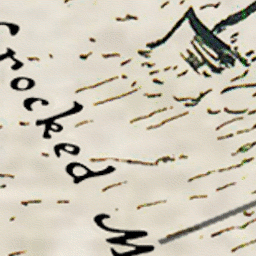 Crooked M